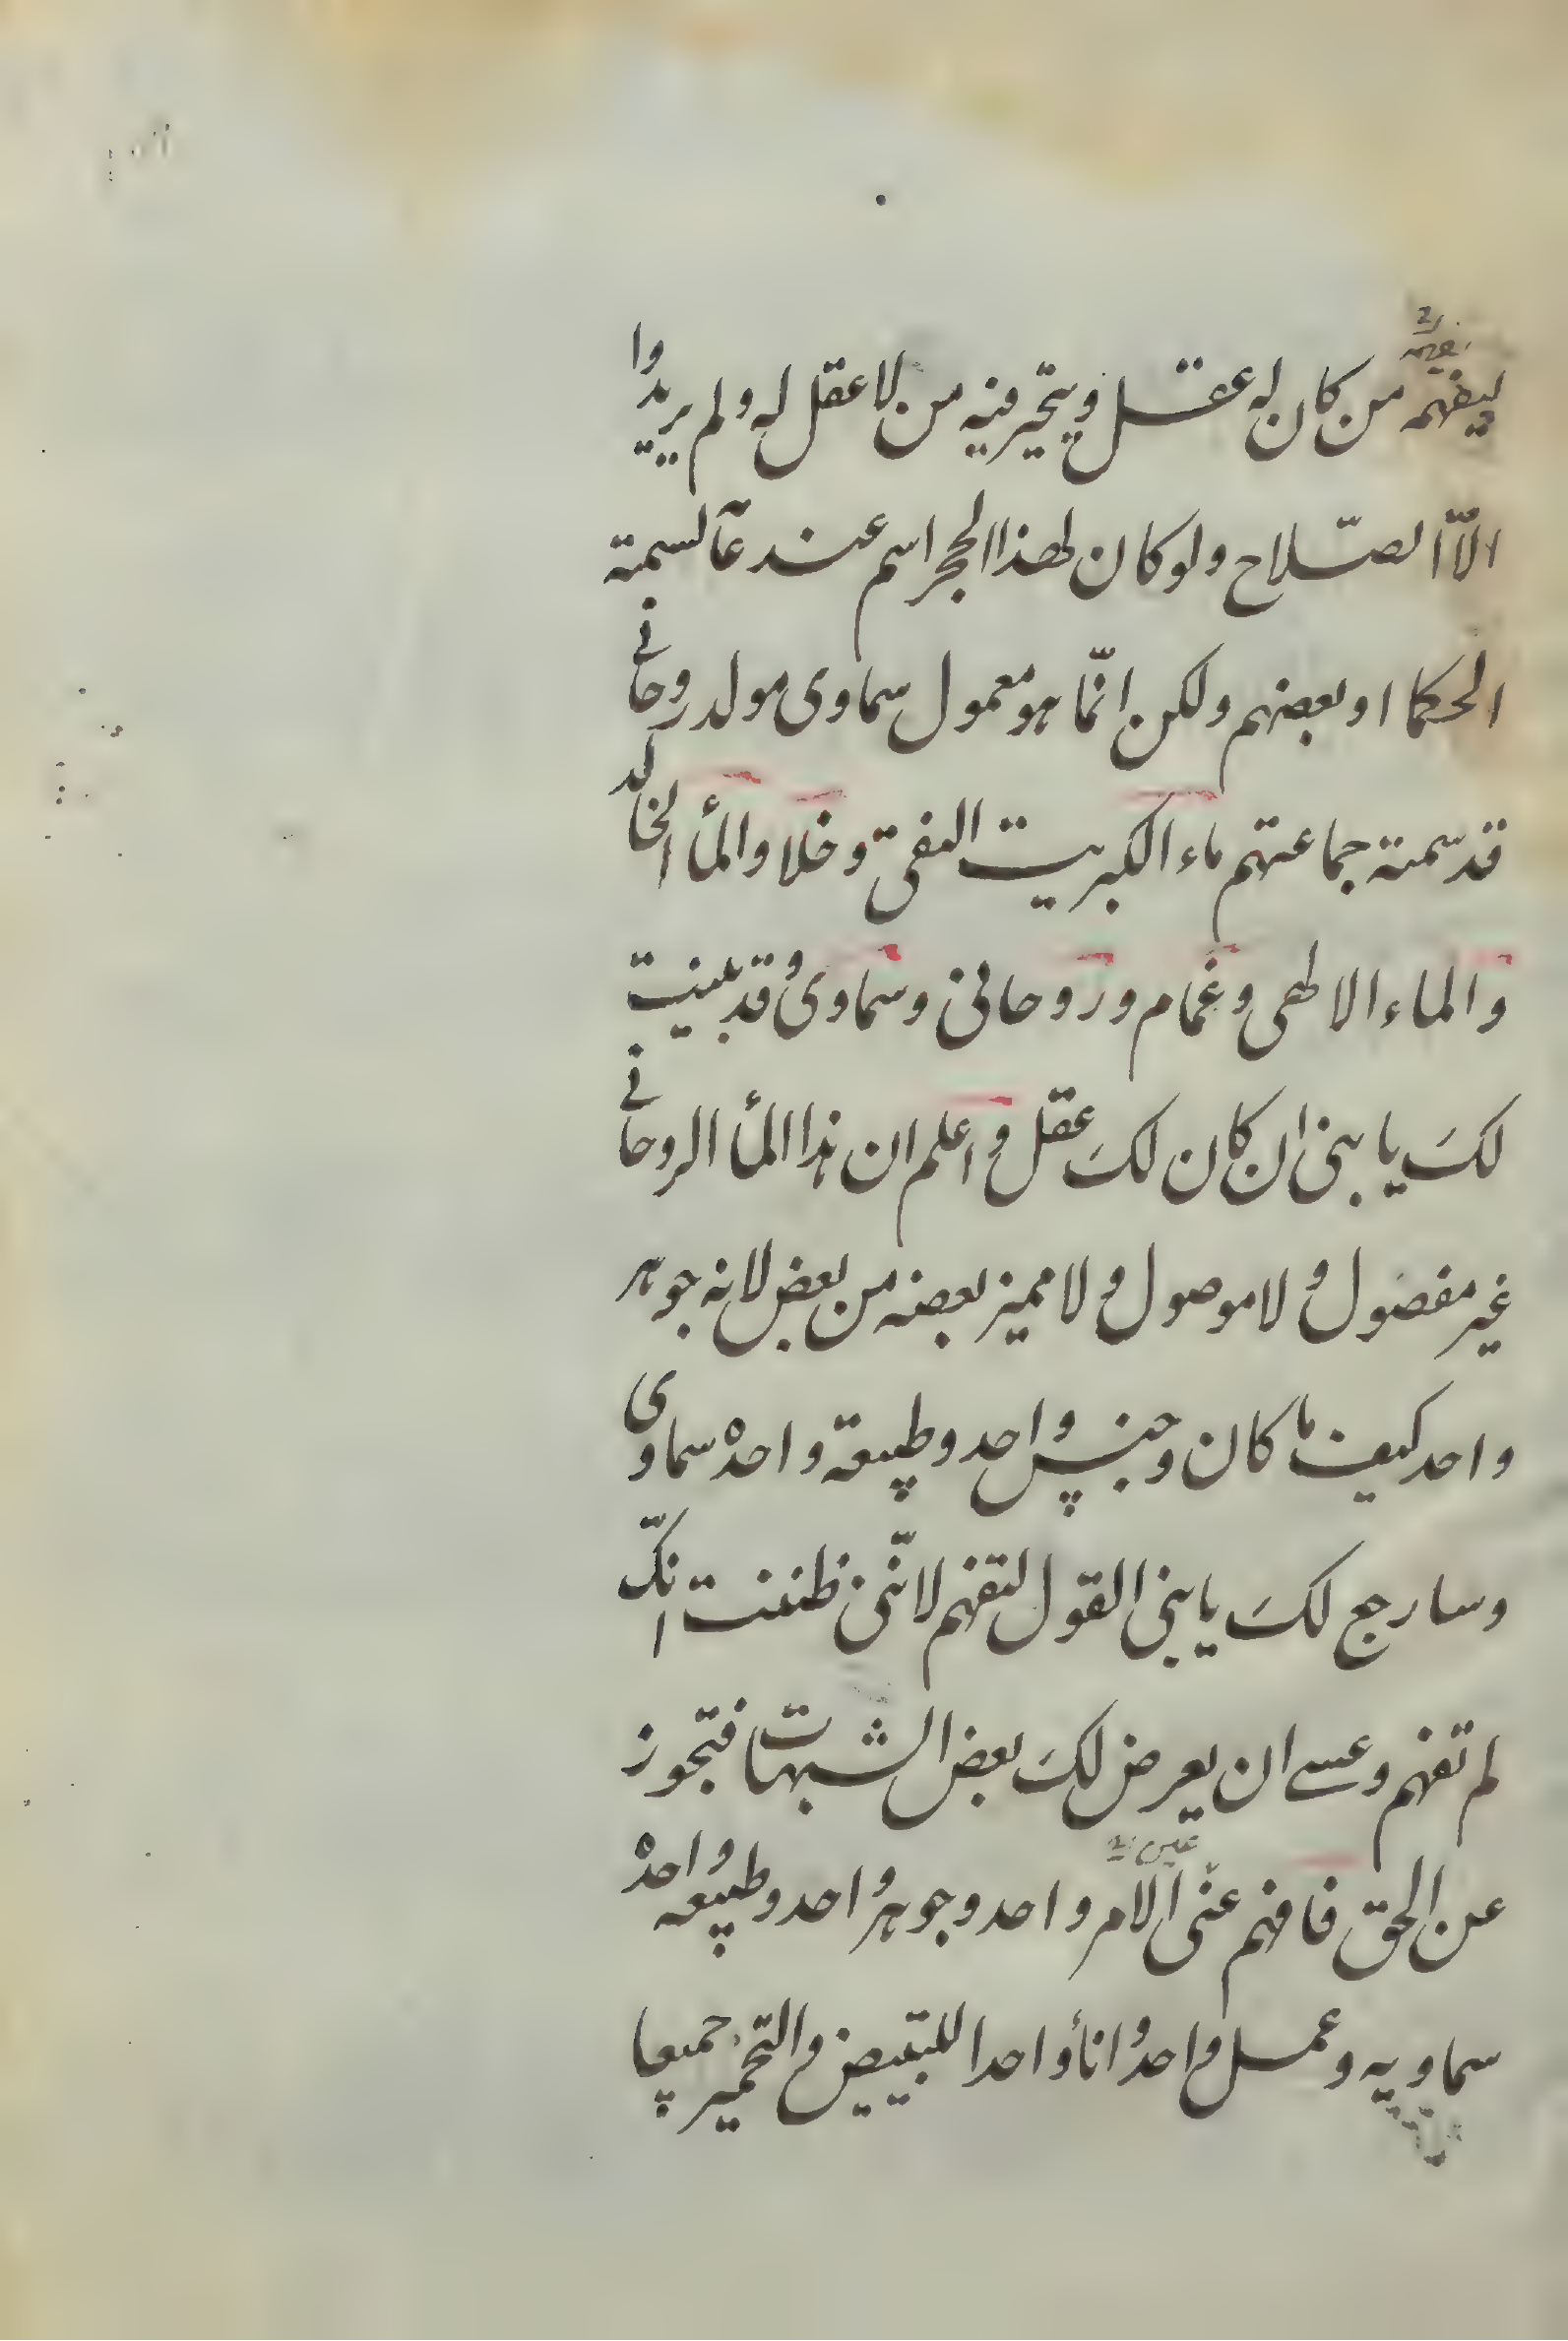 ليفهمه من كان له عقل ويتحير فيه من لا عقل له ولم يريدوا
الّا الصّلاح ولو كان لهذا الحجر اسم عند عآلسمته
الحكما او بعضهم ولكن انّما هو معمول سماوى مولد روحانى
قد سمته جماعتهم ماء الكبريت النقى وخلا والمأ الخالد
والماء الالهى وغمام وروحانى وسماوى وقد بينت
لكَ يا بنى ان كان لكَ عقل واعلم ان هذا المأ الروحانى
غير مفصول ولا موصول ولا مميز بعضه من بعض لانه جوهر
واحد كيف ما كان وجنس واحد وطبيعة واحدة سماوى
وسارجع لكَ يا بنى القول لتفهم لانّنى ظننت انكّ
لم تفهم وعسى ان يعرض لكَ بعض الشبهات فتجوز
عن الحق فافهم عنى الامر واحد وجوهر واحد وطبيعه واحدة
سماويه وعمل واحد وانأ واحدا للتبييض والتحمير جميعا